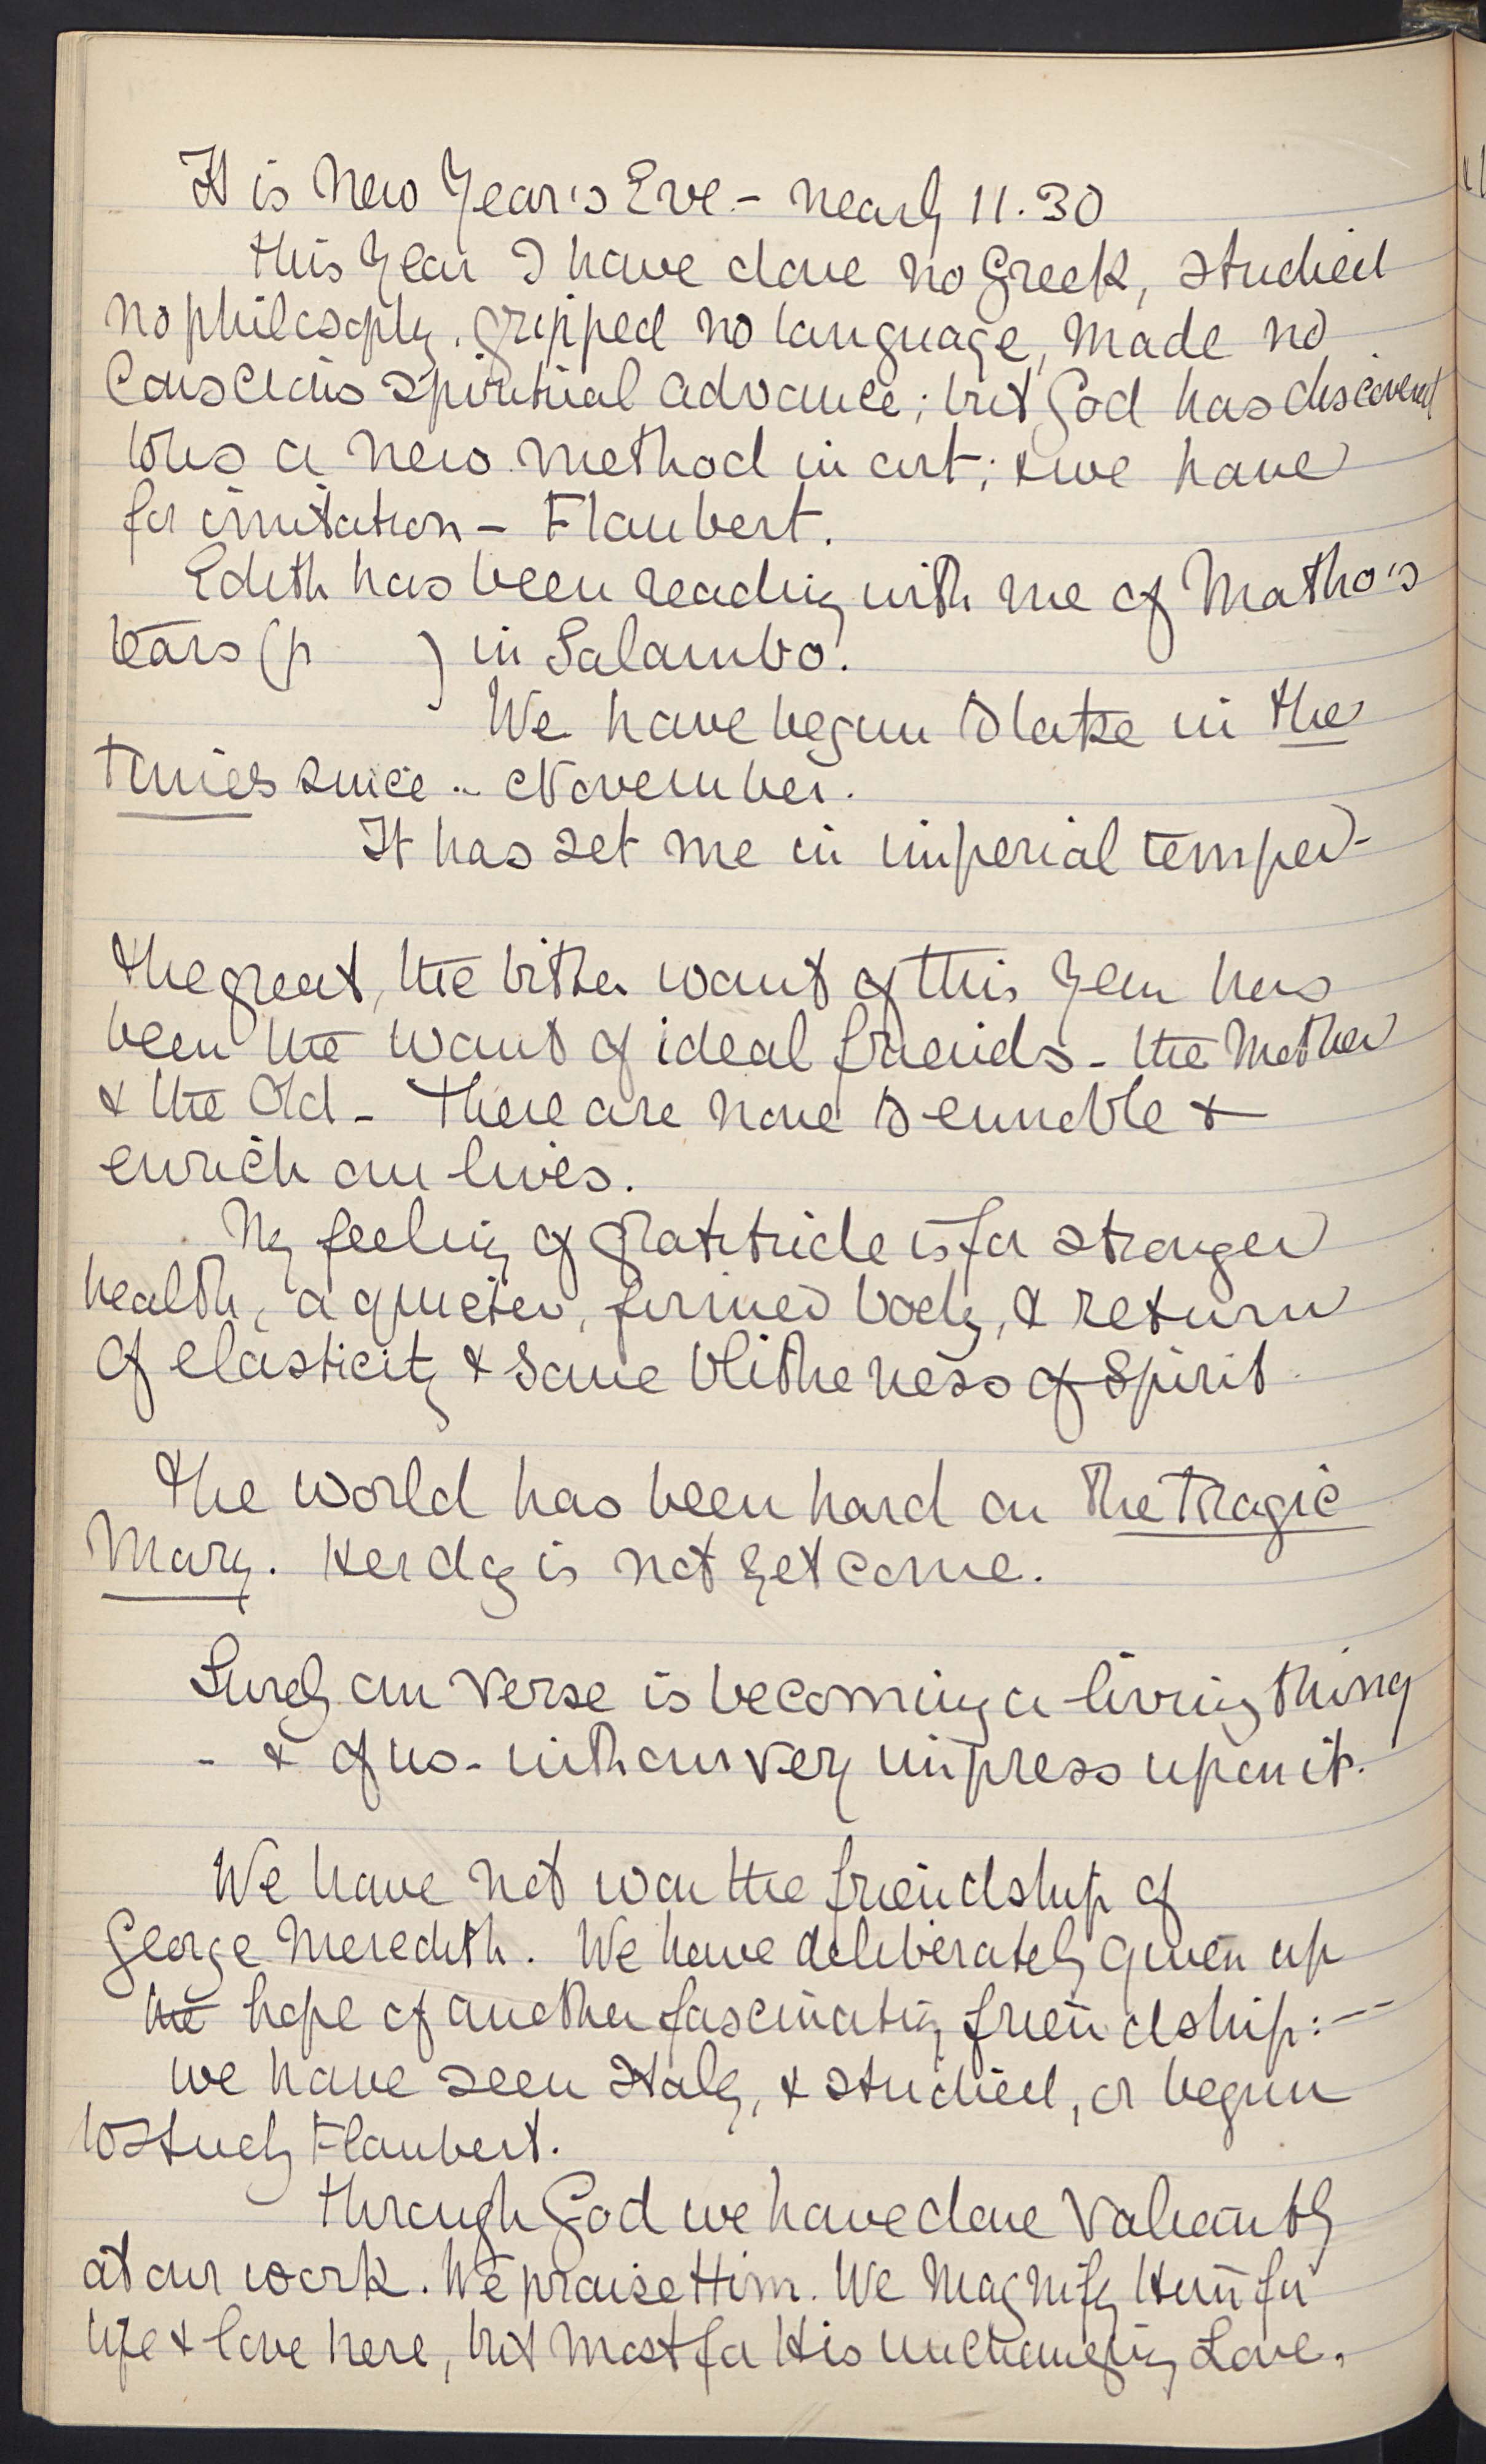 It is New Year's Eve – nearly 11.30
this Year I have done no Greek, studied
no philosophy, gripped no language, made no
conscious spiritual advance; but God has discovered
to us a new method in art; & we have
for imitation – Flaubert.
Edith has been reading with me of Matho's
tears (p      ) in Salambo.
We have begun to take in the
Times since .. November.
It has set me in imperial temper –
the great, the bitter want of this Year has
been the want of ideal friends – the Mother
& the Old – There are none to ennoble &
enrich our lives.
My feeling of gratitude is for stronger
health, a quieter, firmer body, & return
of elasticity & some blitheness of Spirit
the World has been hard on The Tragic
Mary. Her day is not yet come.
Surely our verse is becoming a living thing
– & of us – with our very impress upon it.
We have not won the friendship of
George Meredith. We have deliberately given up
the hope of another fascinating friendship: –
we have seen Italy, & studied, or begun
to study Flaubert.
Through God we have done Valiantly
at our work. We praise Him. We Magnify Him for
life & love here, but most for His unchanging Love.